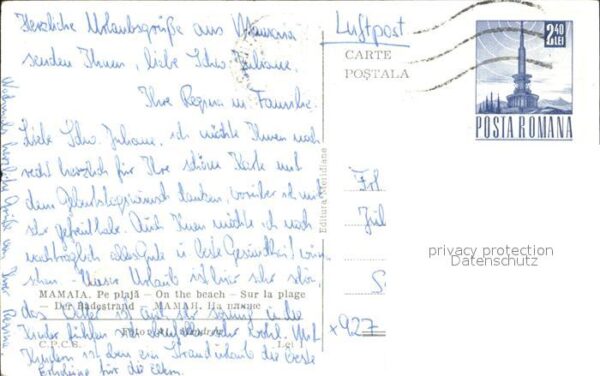 Herzliche Urlaubsgrüße aus Mamaia
senden Ihnen, liebe Schw. Juliane,
Ihre Regina m. Familie.
Liebe Schw. Juliane, ich möchte Ihnen noch
recht herzlich für Ihre schöne Karte mit
dem Geburtstagswunsch danken, worüber ich mich
sehr gefreut habe. Auch Ihnen möchte ich noch
nachträglich alles Gute u. beste Gesundheit wün-
schen – Unser Urlaub ist hier sehr schön,
das Wetter ist auch sehr sonnig u. die
Kinder fühlen sich wohl. Mit
Kindern ist denn ein Strandurlaub die beste
Erholung für die Eltern.
herzliche Grüße von Ihrer Regina
Luftpost
CARTE
POŞTALA
2,40
LEI
POSTA ROMANA
Editura Meridiane
Frl.
Jul
S
privacy protection
Datenschutz
MAMAIA. Pe plajă — On the beach — Sur la plage
— Der Badestrand — МАМАЯ. На пляже
Foto
C.P.C.S.
Lei 1
x 927